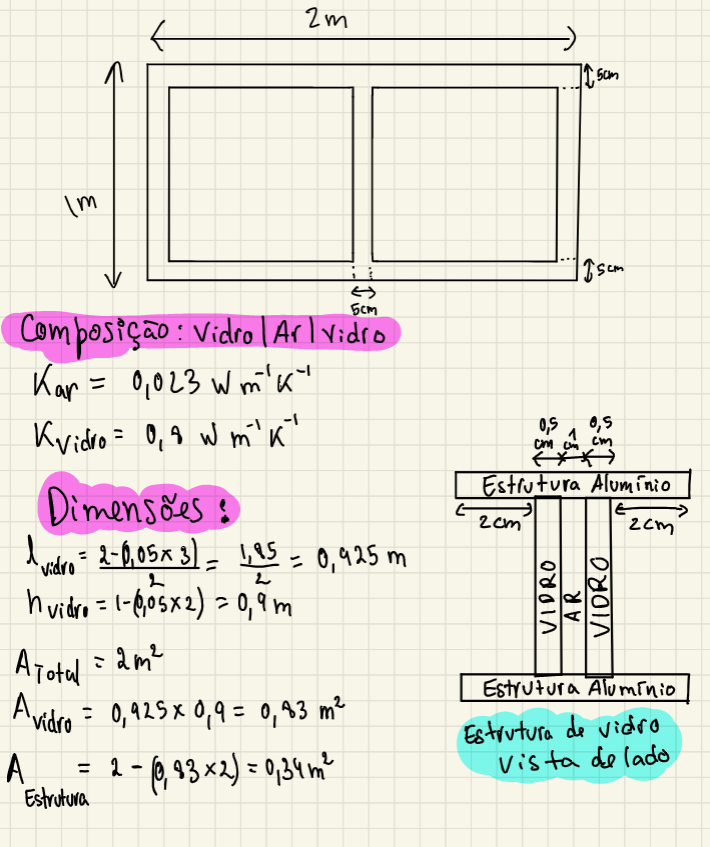 2m
5cm
1m
5cm
5cm
Composição: Vidro | Ar | Vidro
Kar = 0,023 W m⁻¹ K⁻¹
KVidro = 0,8 W m⁻¹ K⁻¹
Dimensões:
lvidro = 2-(0,05×3)/2 = 1,85/2 = 0,925 m
hvidro = 1-(0,05×2) = 0,9 m
ATotal = 2m²
Avidro = 0,925 × 0,9 = 0,83 m²
AEstrutura = 2 - (0,83×2) = 0,34 m²
0,5 cm 1 cm 0,5 cm
Estrutura Alumínio
2cm 2cm
VIDRO AR VIDRO
Estrutura Alumínio
Estrutura de vidro
vista de lado